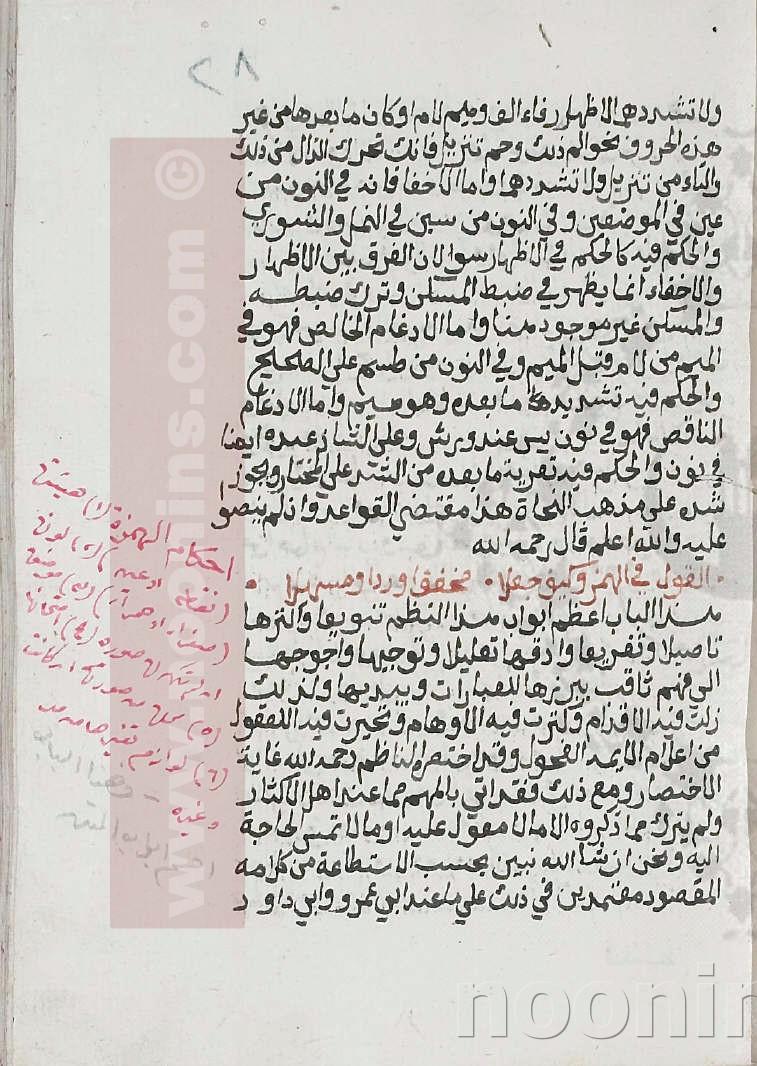 ٨٢
ولا تشددهم الاظهار فاء الف وميم لام او كان ما بعدها من غير
هذه الحروف نحو الم ذلك وحم تنزيل فانك تحرك الذال من ذلك
والتاء من تنزيل ولا تشددهما واما الاخفا فانه في النون من
عين في الموضعين وفي النون من سين في النمل والشوري
والحكم فيه كالحكم في الاظهار سوا لان الفرق بين الاظهار
والاخفاء انما يظهر في ضبط المسكن وترك ضبطه
والمسكن غير موجود هنا واما الادغام الخالص فهو في
الميم من لام قبل الميم وفي النون من طسم علي الصحيح
والحكم فيه تشديد ما بعده وهو ميم واما الادغام
الناقص فهو في نون يس عند ورش وعلي الشاذ عنده ايضا
في نون والحكم فيه تعرية ما بعده من الشد علي المختار ويجوز
شده علي مذهب النحاة هذا مقتضي القواعد وان لم ينصوا
عليه والله اعلم قال رحمه الله
القول في الهمز وكيف جعلا محققا ورد او مسهلا
هذا الباب اعظم ابواب هذا النظم تنويعا واكثرها
تاصيلا وتفريعا وادقها تعليلا وتوجيها واحوجها
الي فهم ثاقب يبرزها للعبارات ويبديها ولذلك
زلت فيه الاقدام وكثرت فيه الاوهام وتحيرت فيه العقول
من اعلام الايمه الفحول وقد اختصره الناظم رحمه الله غاية
الاختصار ومع ذلك فقد اتي بالمهم مما عند اهل الاكثار
ولم يترك مما ذكروه الا ما لا معول عليه او ما لا تمس الحاجة
اليه ونحن ان شا الله نبين بحسب الاستطاعة من كلامه
المقصود معتمدين في ذلك علي ما عند ابي عمرو وابي داود
احكام الهمزة (١) هيئتها
(٢) لونها
وغيره
www.noonins.com ©
noonin